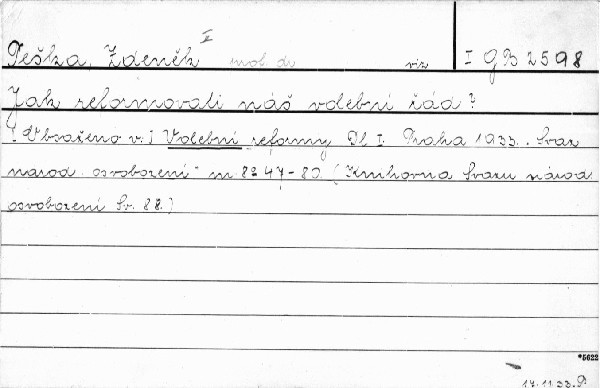 Peška, Zdeněk viz I GB 2598
Jak reformovali náš volební řád?
(Obsaženo v:) Volební reformy Dl I. Praha 1933. Svaz
národ. osvobození m. 8° 47-80. (Knihovna Svazu národ
osvobození Sv. 88.)
*5622
14.11.33.P.